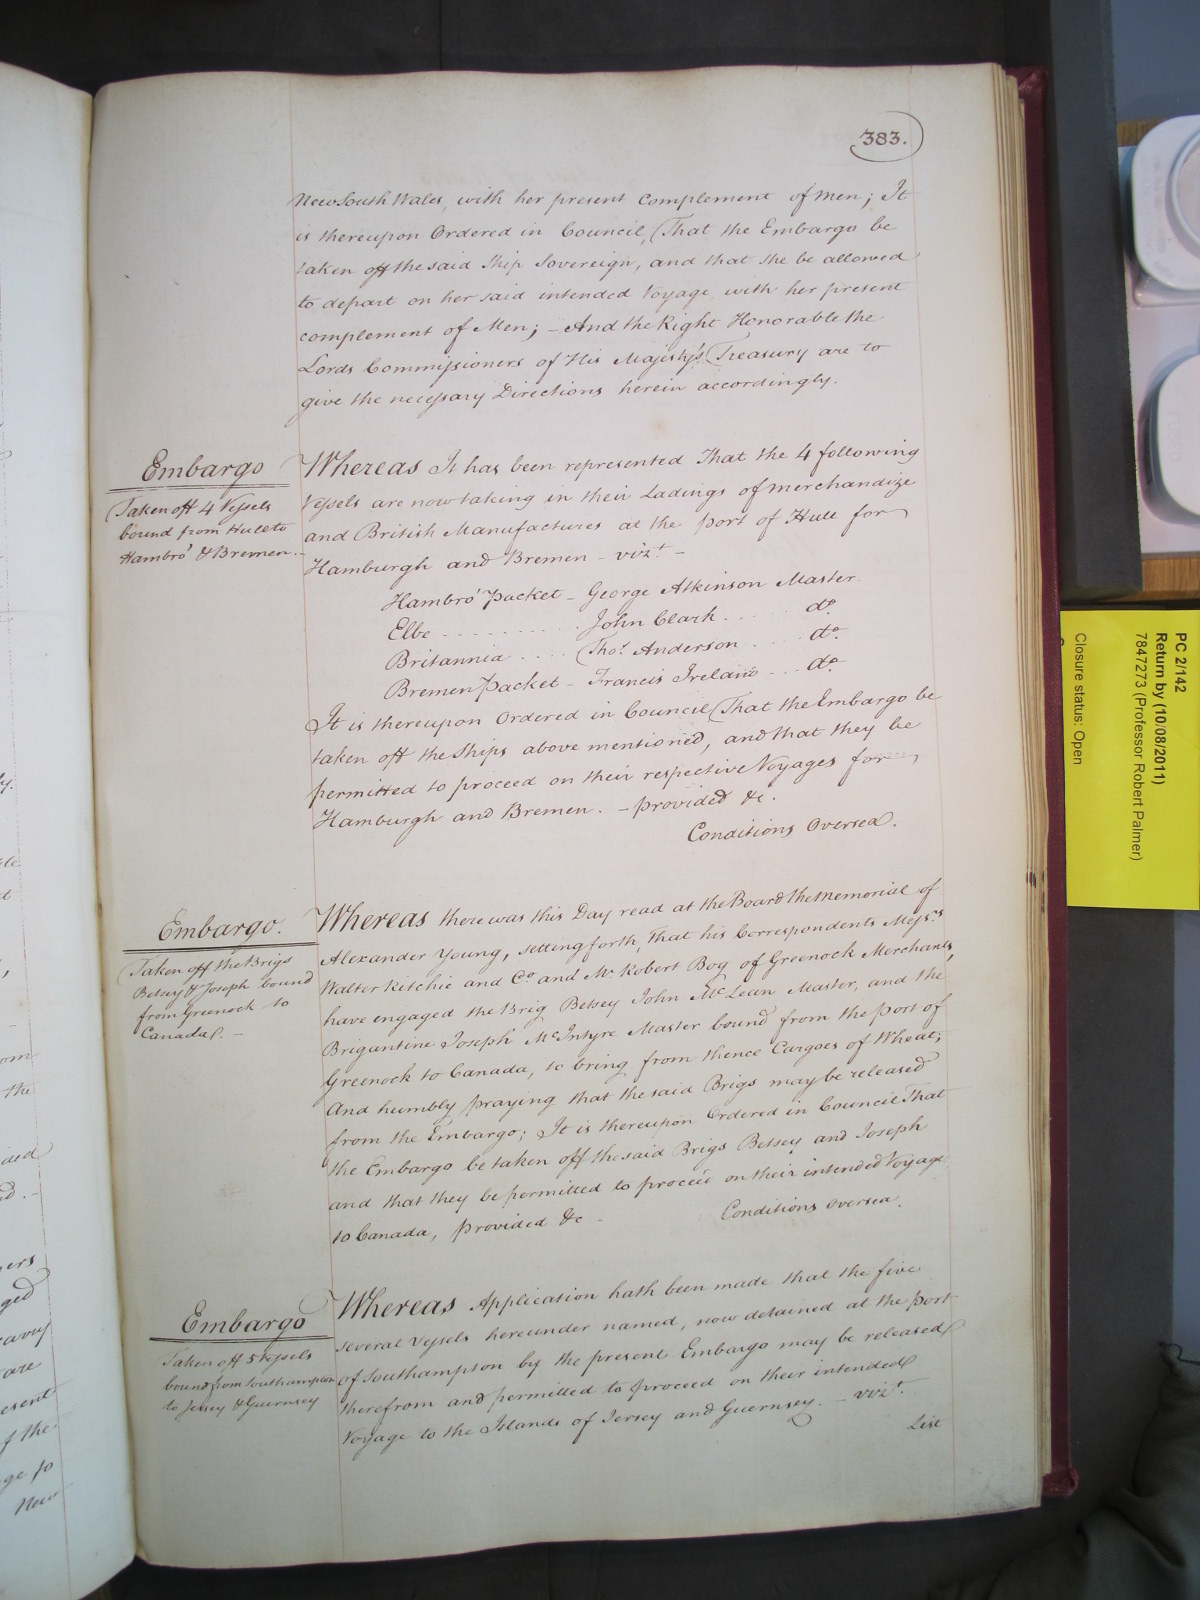 383.
New South Wales, with her present Complement of Men; It
is thereupon Ordered in Council, That the Embargo be
taken off the said Ship Sovereign, and that she be allowed
to depart on her said intended Voyage, with her present
complement of Men; – And the Right Honorable the
Lords Commissioners of His Majesty's Treasury are to
give the necessary Directions herein accordingly.
Embargo
Taken off 4 Vessels
bound from Hull to
Hambro' & Bremen. –
Whereas It has been represented That the 4 following
Vessels are now taking in their Ladings of Merchandize
and British Manufactures at the port of Hull for
Hamburgh and Bremen – vizt. –
Hambro' Packet – George Atkinson Master.
Elbe .......... John Clark .... do.
Britannia .... Thos. Anderson .... do.
Bremen Packet – Francis Ireland ... do.
It is thereupon Ordered in Council That the Embargo be
taken off the Ships above mentioned, and that they be
permitted to proceed on their respective Voyages for
Hamburgh and Bremen. – provided &c.
Conditions Oversea.
Embargo.
Taken off the Brigs
Betsey & Joseph bound
from Greenock to
Canada. –
Whereas there was this Day read at the Board the Memorial of
Alexander Young, setting forth, That his Correspondents Messrs
Walter Ritchie and Co. and Mr. Robert Bog of Greenock Merchants,
have engaged the Brig Betsey John McLean Master, and the
Brigantine Joseph McIntyre Master bound from the port of
Greenock to Canada, to bring from thence Cargoes of Wheat;
And humbly praying that the said Brigs may be released
from the Embargo; It is thereupon Ordered in Council That
the Embargo be taken off the said Brigs Betsey and Joseph
and that they be permitted to proceed on their intended Voyage
to Canada, provided &c – Conditions Oversea.
Embargo
Taken off 5 Vessels
bound from Southampton
to Jersey & Guernsey
Whereas Application hath been made that the five
several Vessels hereunder named, now detained at the Port
of Southampton by the present Embargo may be released
therefrom and permitted to proceed on their intended
Voyage to the Islands of Jersey and Guernsey. – vizt.
List
PC 2/142
Return by (10/08/2011)
7847273 (Professor Robert Palmer)
Closure status: Open